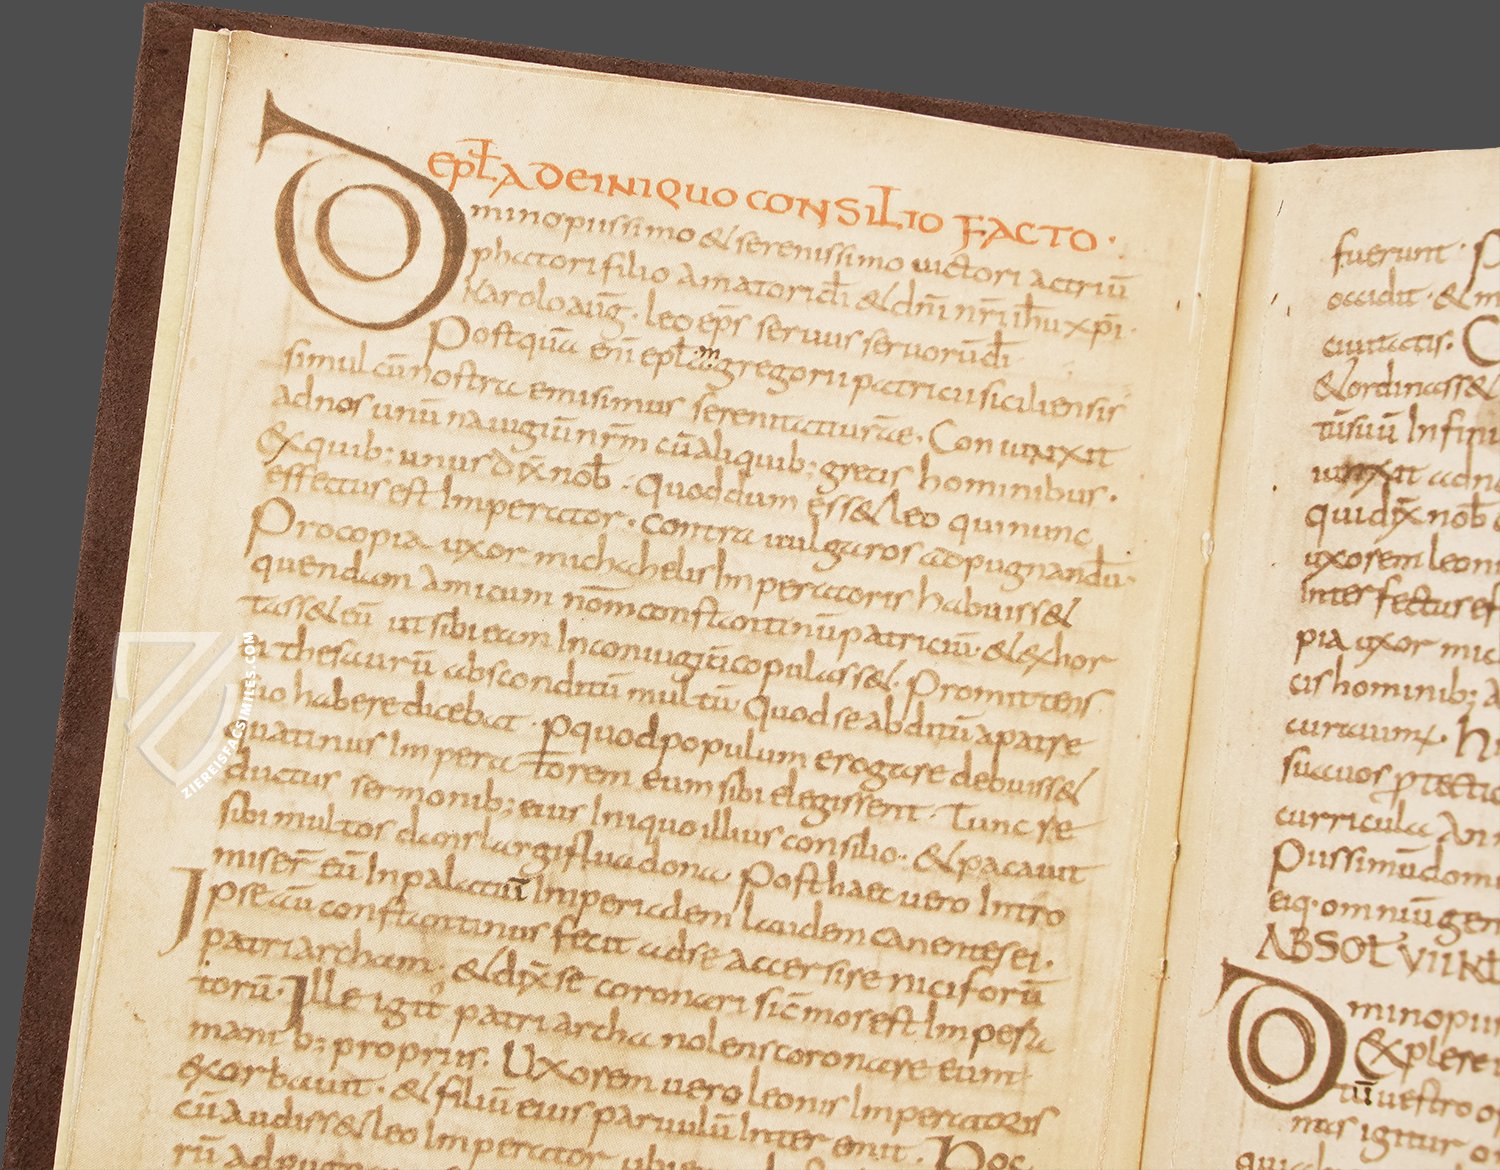 EPŁA DE INIQUO CONSILIO FACTO ·
Dominopiissimo & serenissimo uictori ac triū
phatori filio amatori dī & dñi nr̄i ihū xp̄i ·
Karolo aug̅ · leo ep̄s seruus seruorū dī
Postquā em̄ epl̄a m gregorii patricii siciliensis
simul cū nostra emisimus serenitati ur̄ae · Coniunxit
ad nos unū nauigiū nr̄m cū aliquib; grecis hominibus ·
Ex quib; unus dix̄ nob̄ : Quod dum ess& leo qui nunc
effectus est Imperator · contra uulgaros ad pugnandū ·
Procopia uxor michahelis Imperatoris habuiss&
quendam amicum nom̄ constantinū patriciū · & exhor
tass& eū ut sibi eam In coniugiū copulass& · Promittens
thesaurū absconditū multū Quod se abditū a patre
suo habere dicebat · p quod populum erogare debuiss&
quatinus Imperatorem eum sibi elegissent · Tunc se
ductus sermonib; eius Iniquo illius consilio · & pacauit
sibi multos dans largiflua dona · Post haec uero Intro
miser̄ eū In palatiū Imperi adem laudem canentes ei ·
Ipse aū constantinus fecit ad se accersire niciforū
patriarcham · & dix̄ se coronari sic̄ mos est Impera
torū · Ille igit̄ patriarcha nolens coronare eum ·
manib; propriis · Uxorem uero leonis Imperatoris
exorbauit · & filiū eius paruulū Interemit · Hoc
cū audiss& leo Imperator
rū ad
fuerunt ·
occidit · & m
ciuitatis · C
& ordinass&
tūsuū In
uinxit adno
qui dix̄ nob̄
uxorem leoni
Interfectus es
pia uxor mic
cis hominib; A
curauim̄ · H
suauos protectio
curricula An
Piissimū dom
eiq · omniū gen
ABSOŁ VII KŁ
Dominopiis
Explere
tuī uestro
mus igitur
ZIEREISFACSIMILES.COM